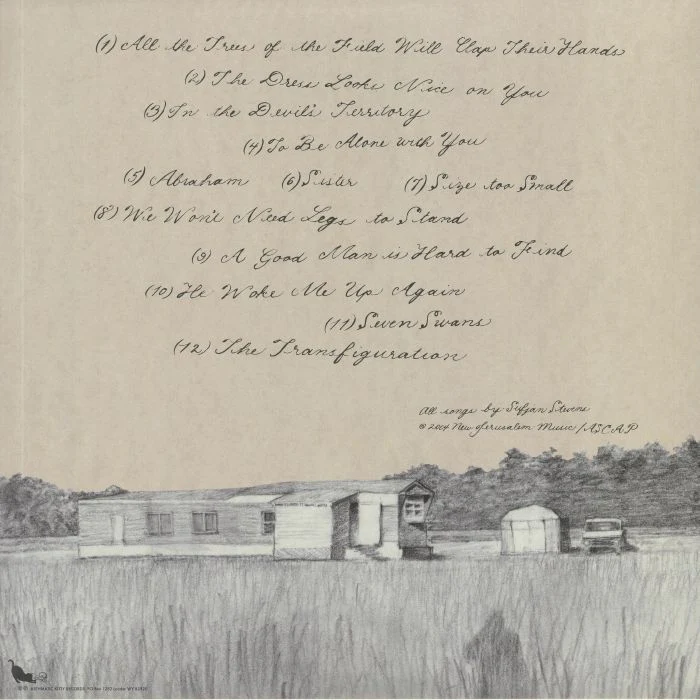 (1) All the Trees of the Field Will Clap Their Hands
(2) The Dress Looks Nice on You
(3) In the Devil's Territory
(4) To Be Alone with You
(5) Abraham (6) Sister (7) Size too Small
(8) We Won't Need Legs to Stand
(9) A Good Man is Hard to Find
(10) He Woke Me Up Again
(11) Seven Swans
(12) The Transfiguration
All songs by Sufjan Stevens
© 2004 New Jerusalem Music / ASCAP
ASTHMATIC KITTY RECORDS PO Box 1282 Lander WY 82520